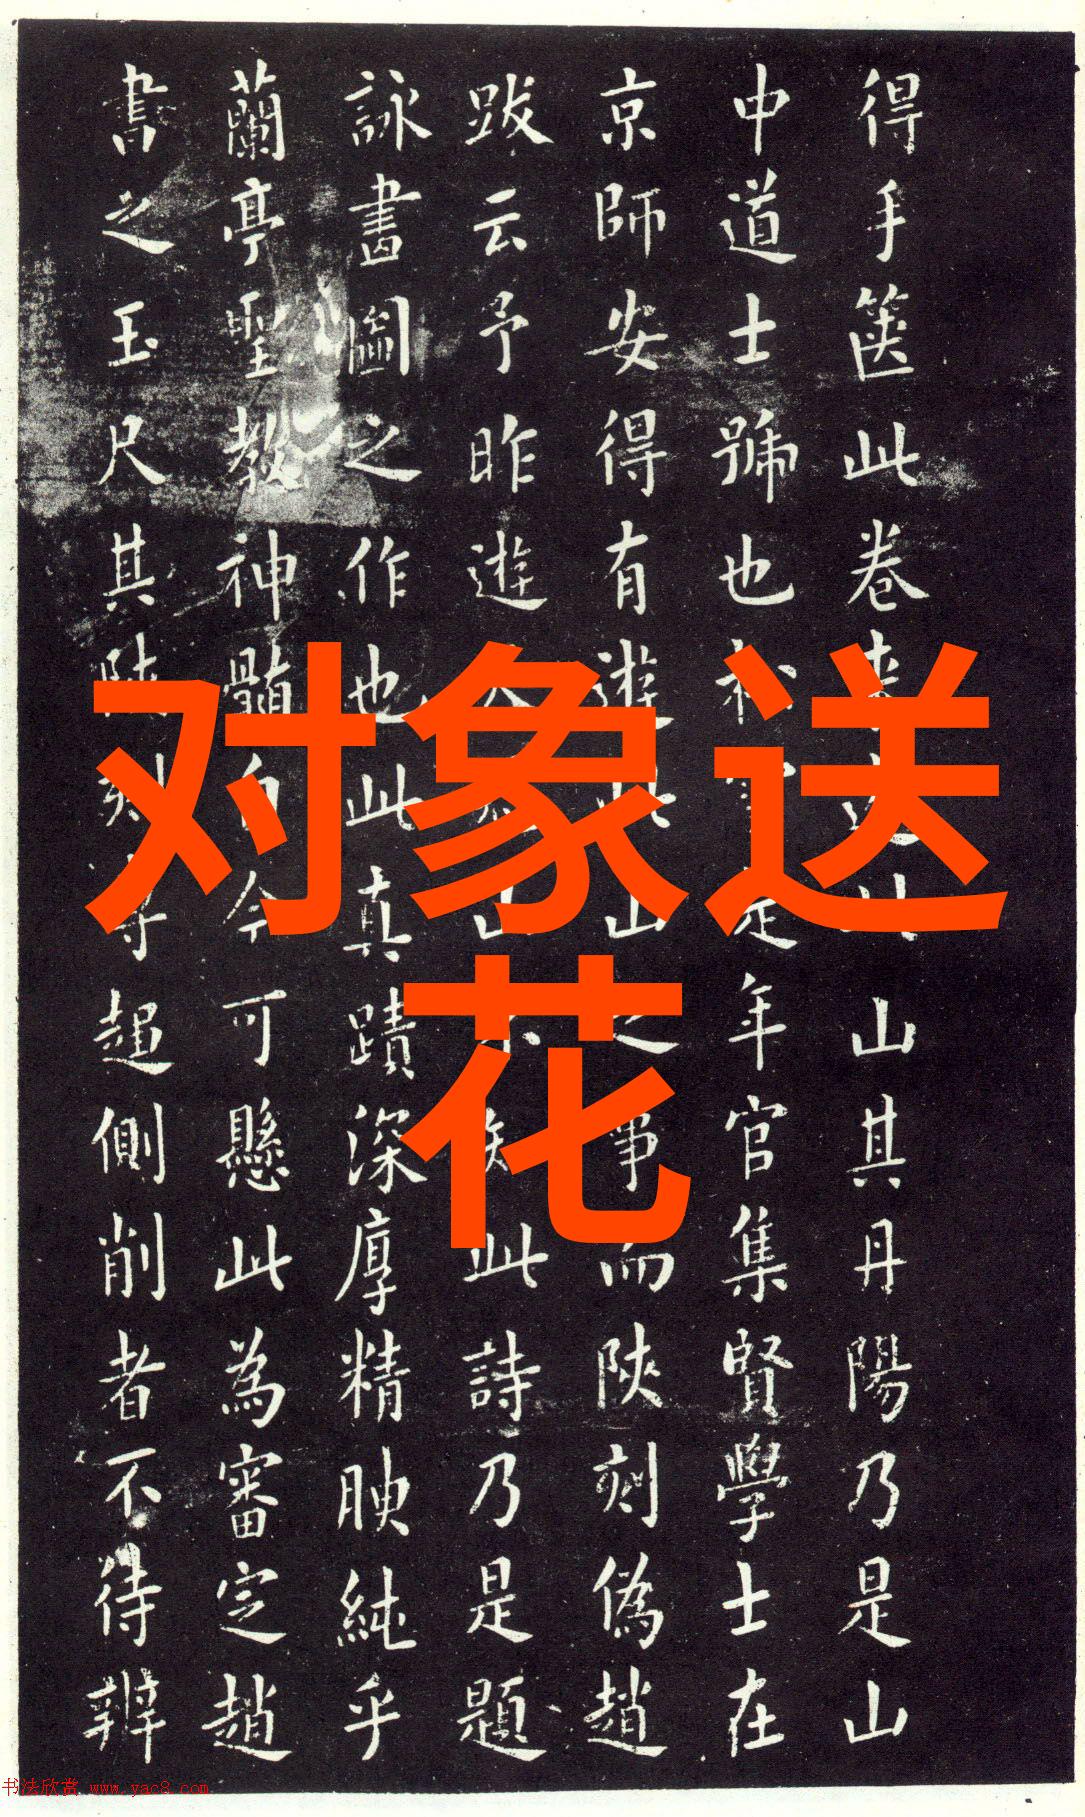 得手篋此卷山其丹陽乃是山
中道士號也松年官集賢學士在
京師安得有遊此山之事而陝刻偽趙
跋云予昨遊此詩乃是題
詠畫圖之作也此真蹟深厚精腴純乎
蘭亭聖教神髓自今可懸此為審定趙
書之玉尺其陝刻等趨側削者不待辨
对象送
花
书法欣赏 www.yac8.com